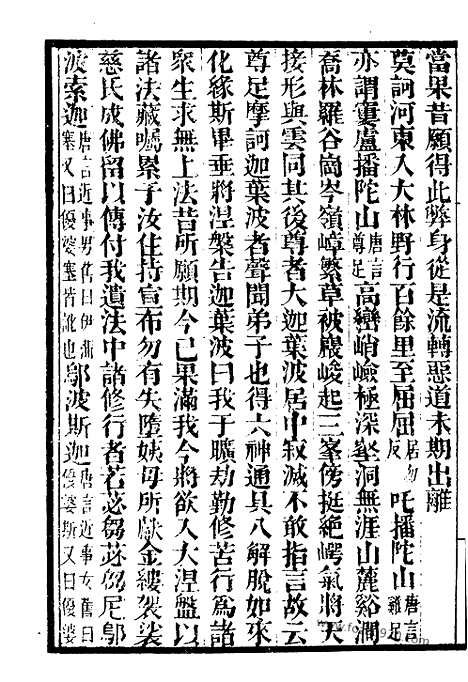 當果昔願得此弊身從是流轉惡道未期出離
莫訶河東入大林野行百餘里至屈屈居勿反吒播陀山唐言雞足
亦謂窶盧播陀山唐言尊足高巒峭嶮極深壑洞無涯山麓谿澗
喬林羅谷崗岑嶺嶂繁草被巖峻起三峯傍挺絕崿氣將天
接形與雲同其後尊者大迦葉波居中寂滅不敢指言故云
尊足摩訶迦葉波者聲聞弟子也得六神通具八解脫如來
化緣斯畢垂將涅槃告迦葉波曰我於曠劫勤修苦行爲諸
衆生求無上法昔所願期今已果滿我今將欲入大涅盤以
諸法藏囑累于汝住持宣布勿有失墜姨母所獻金縷袈裟
慈氏成佛留以傳付我遺法中諸修行者若苾芻苾芻尼鄔
波索迦唐言近事男舊曰伊蒲塞又曰優婆塞皆訛也鄔波斯迦唐言近事女舊曰優婆斯又曰優婆